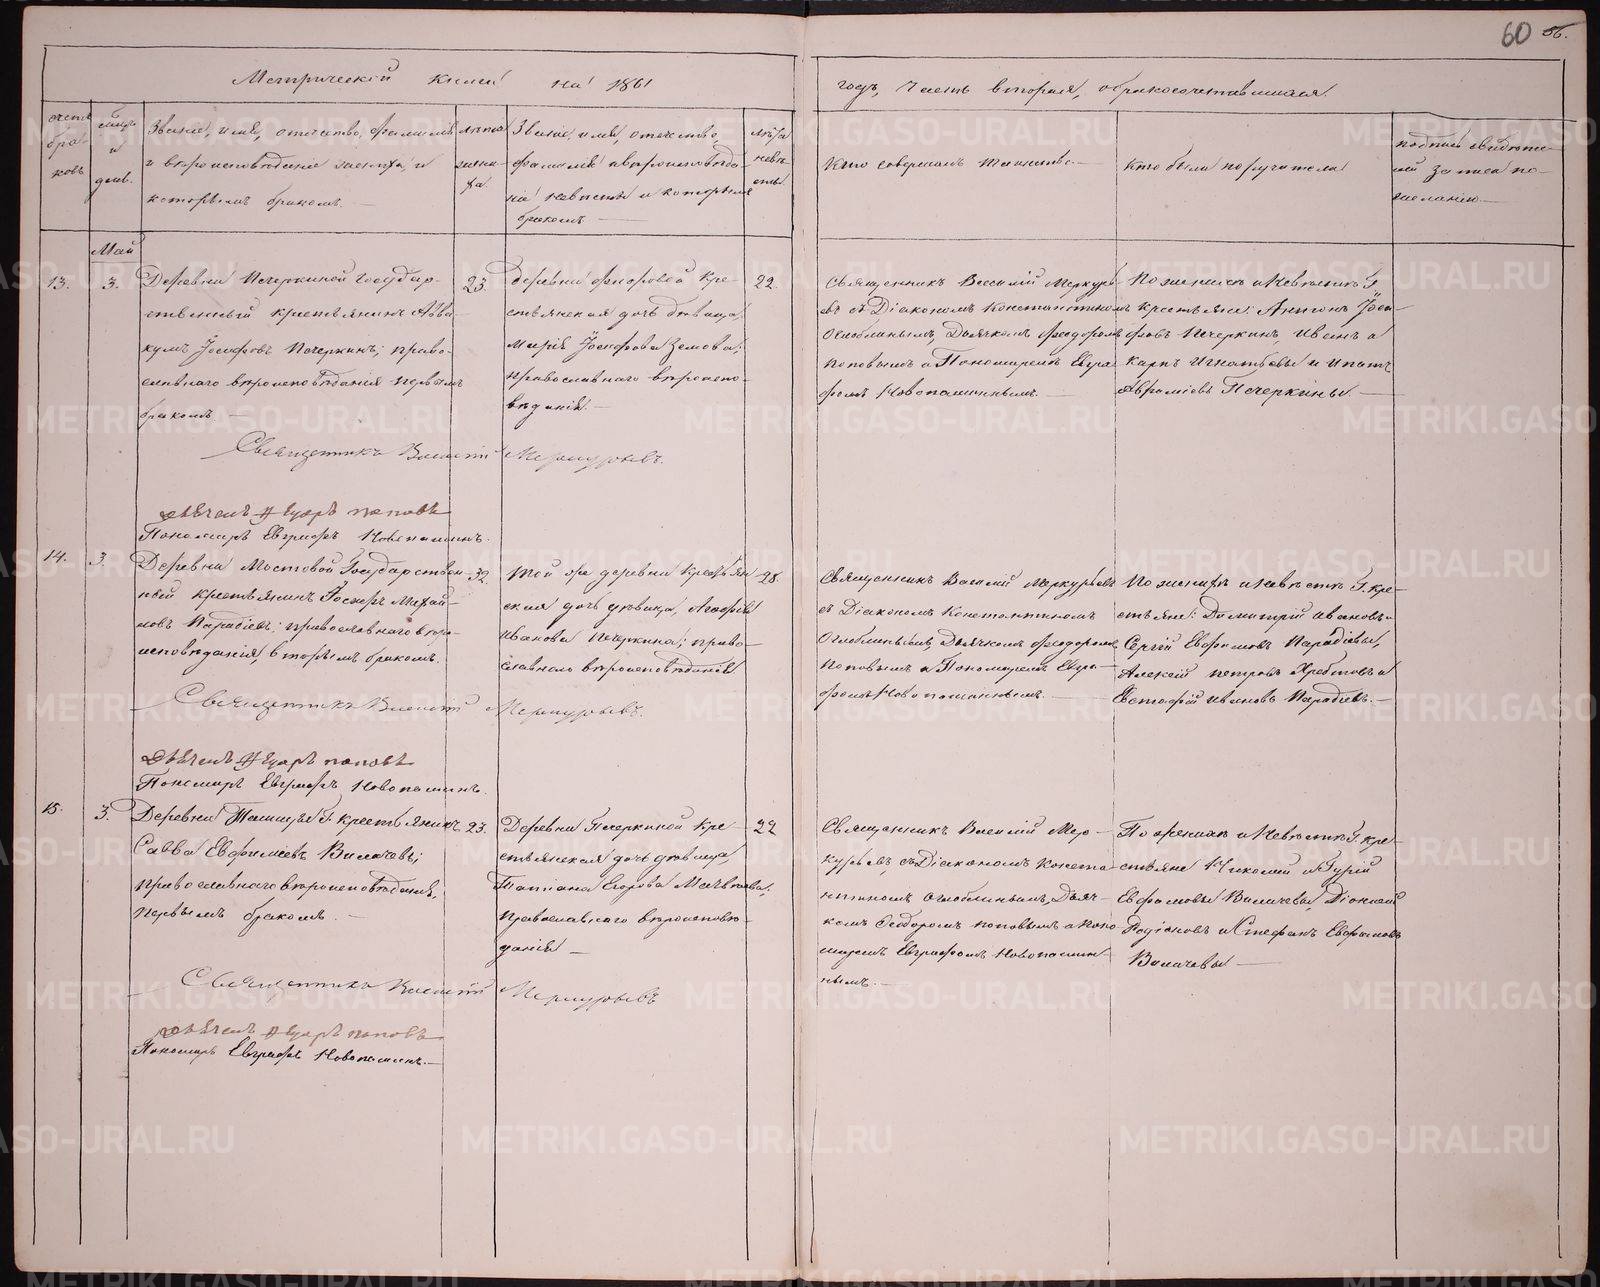 60 об.
Метрической книги на 1861
годъ, Часть вторая, о бракосочетавшихся.
счетъ браковъ
мѣсяцъ и день.
Званіе, имя, отечество, фамилія
и вѣроисповѣданіе жениха, и
которымъ бракомъ.
лѣта жениха.
Званіе, имя, отечество,
фамилія и вѣроисповѣда-
ніе невѣсты и которымъ
бракомъ
лѣта невѣсты
Кто совершалъ таинство
Кто были поручители
подпись свидѣте-
лей записи по
желанію
Май
13. 3. Деревни Печеркиной Государ-
ственный крестьянинъ Авва-
кумъ Іосифовъ Печеркинъ; право-
славнаго вѣроисповѣданія первымъ
бракомъ.
23.
Деревни Кре-
стьянская дочь дѣвица
Марія Іосифова
православнаго вѣроиспо-
вѣданія.
22.
Священникъ Василій Меркурь-
евъ съ Діакономъ Константиномъ
Оглоблинымъ, Дьячкомъ Феодоромъ
Поповымъ и Пономаремъ Евгра-
фомъ Новопашиннымъ.
По женихѣ и невѣстѣ Г.
Крестьяне: Антонъ Іоси-
фовъ Печеркинъ, Иванъ и
Карпъ Игнатьевы и Ипатъ
Авраміевъ Печеркины.
Священникъ Василій Меркурьевъ.
Дьячекъ Федоръ Поповъ
Пономарь Евграфъ Новопашинъ.
14. 3. Деревни Мостовой Государствен-
ный крестьянинъ Іосифъ Михай-
ловъ православнаго вѣро-
исповѣданія, вторымъ бракомъ.
32.
Той же деревни Крестьян-
ская дочь дѣвица, Агафія
Иванова Печеркина; право-
славнаго вѣроисповѣданія
28.
Священникъ Василій Меркурьевъ
съ Діакономъ Константиномъ
Оглоблинымъ, Дьячкомъ Феодоромъ
Поповымъ и Пономаремъ Евгра-
фомъ Новопашиннымъ.
По женихѣ и невѣстѣ Г. кре-
стьяне: Димитрій Ивановъ и
Сергій Евфимовъ
Алексій Петровъ и
Евстафій Ивановъ
Священникъ Василій Меркурьевъ.
Дьячекъ Федоръ Поповъ
Пономарь Евграфъ Новопашинъ.
15. 3. Деревни Г. крестьянинъ
Савва Евфиміевъ Вилачевъ;
православнаго вѣроисповѣданія,
первымъ бракомъ.
23.
Деревни Печеркиной Кре-
стьянская дочь дѣвица,
Татіана Егорова
православнаго вѣроисповѣ-
данія
22
Священникъ Василій Мер-
курьевъ, съ Діакономъ Конста-
нтиномъ Оглоблинымъ, Дьяч-
комъ Феодоромъ Поповымъ и Поно-
маремъ Евграфомъ Новопашин-
нымъ.
По женихѣ и невѣстѣ Г. кре-
стьяне Николай и Гурій
Евфимовы Вилачевы, Діонисій
Родіоновъ и Стефанъ Евфимовъ
Вилачевы
Священникъ Василій Меркурьевъ
Дьячекъ Федоръ Поповъ
Пономарь Евграфъ Новопашинъ.
METRIKI.GASO-URAL.RU